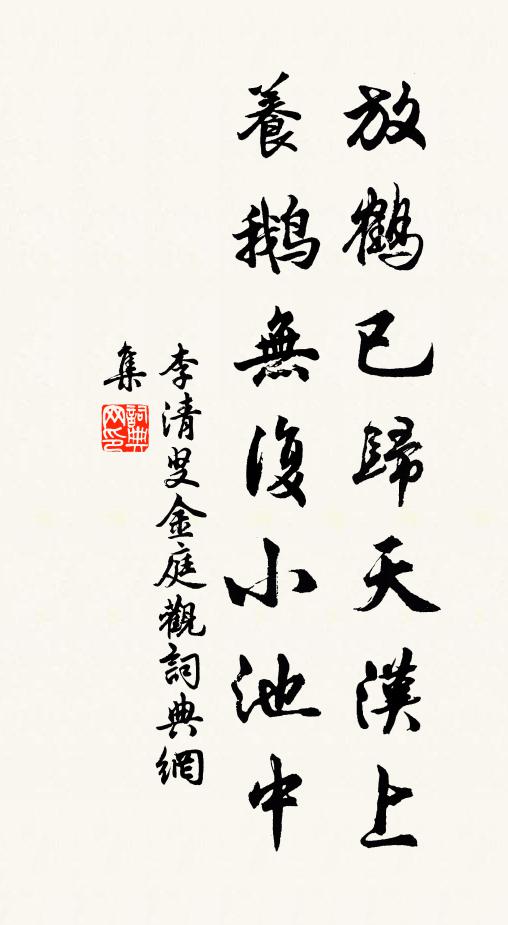 放鶴已歸天漢上
養鵝無復小池中
李清叟金庭觀詞典網
集
詞典網印